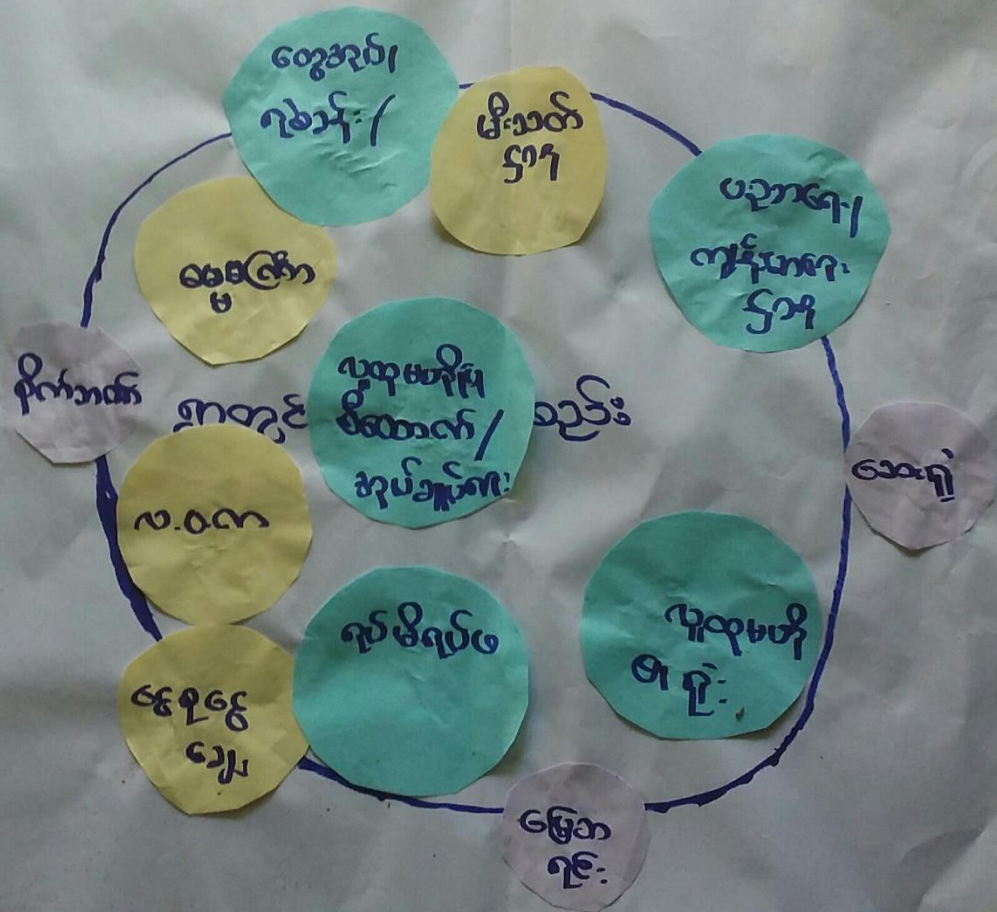 ထွေအုပ်/
ရဲစခန်း/
မီးသတ်
ဌာန
ပညာရေး/
ကျန်းမာရေး
ဌာန
ဓမ္မစကြာ
စိုက်ဘဏ်
ရွာတွင်း
လူထုမဟိုပြု
မီထောက်/
အုပ်ချုပ်ရေး
စည်း
ဆေးရုံ
လ.ဝ.က
ရပ်မိရပ်ဖ
လူထုမဟို
စာရုံး
ငွေစုငွေ
ချေး
မြေစာ
ရင်း